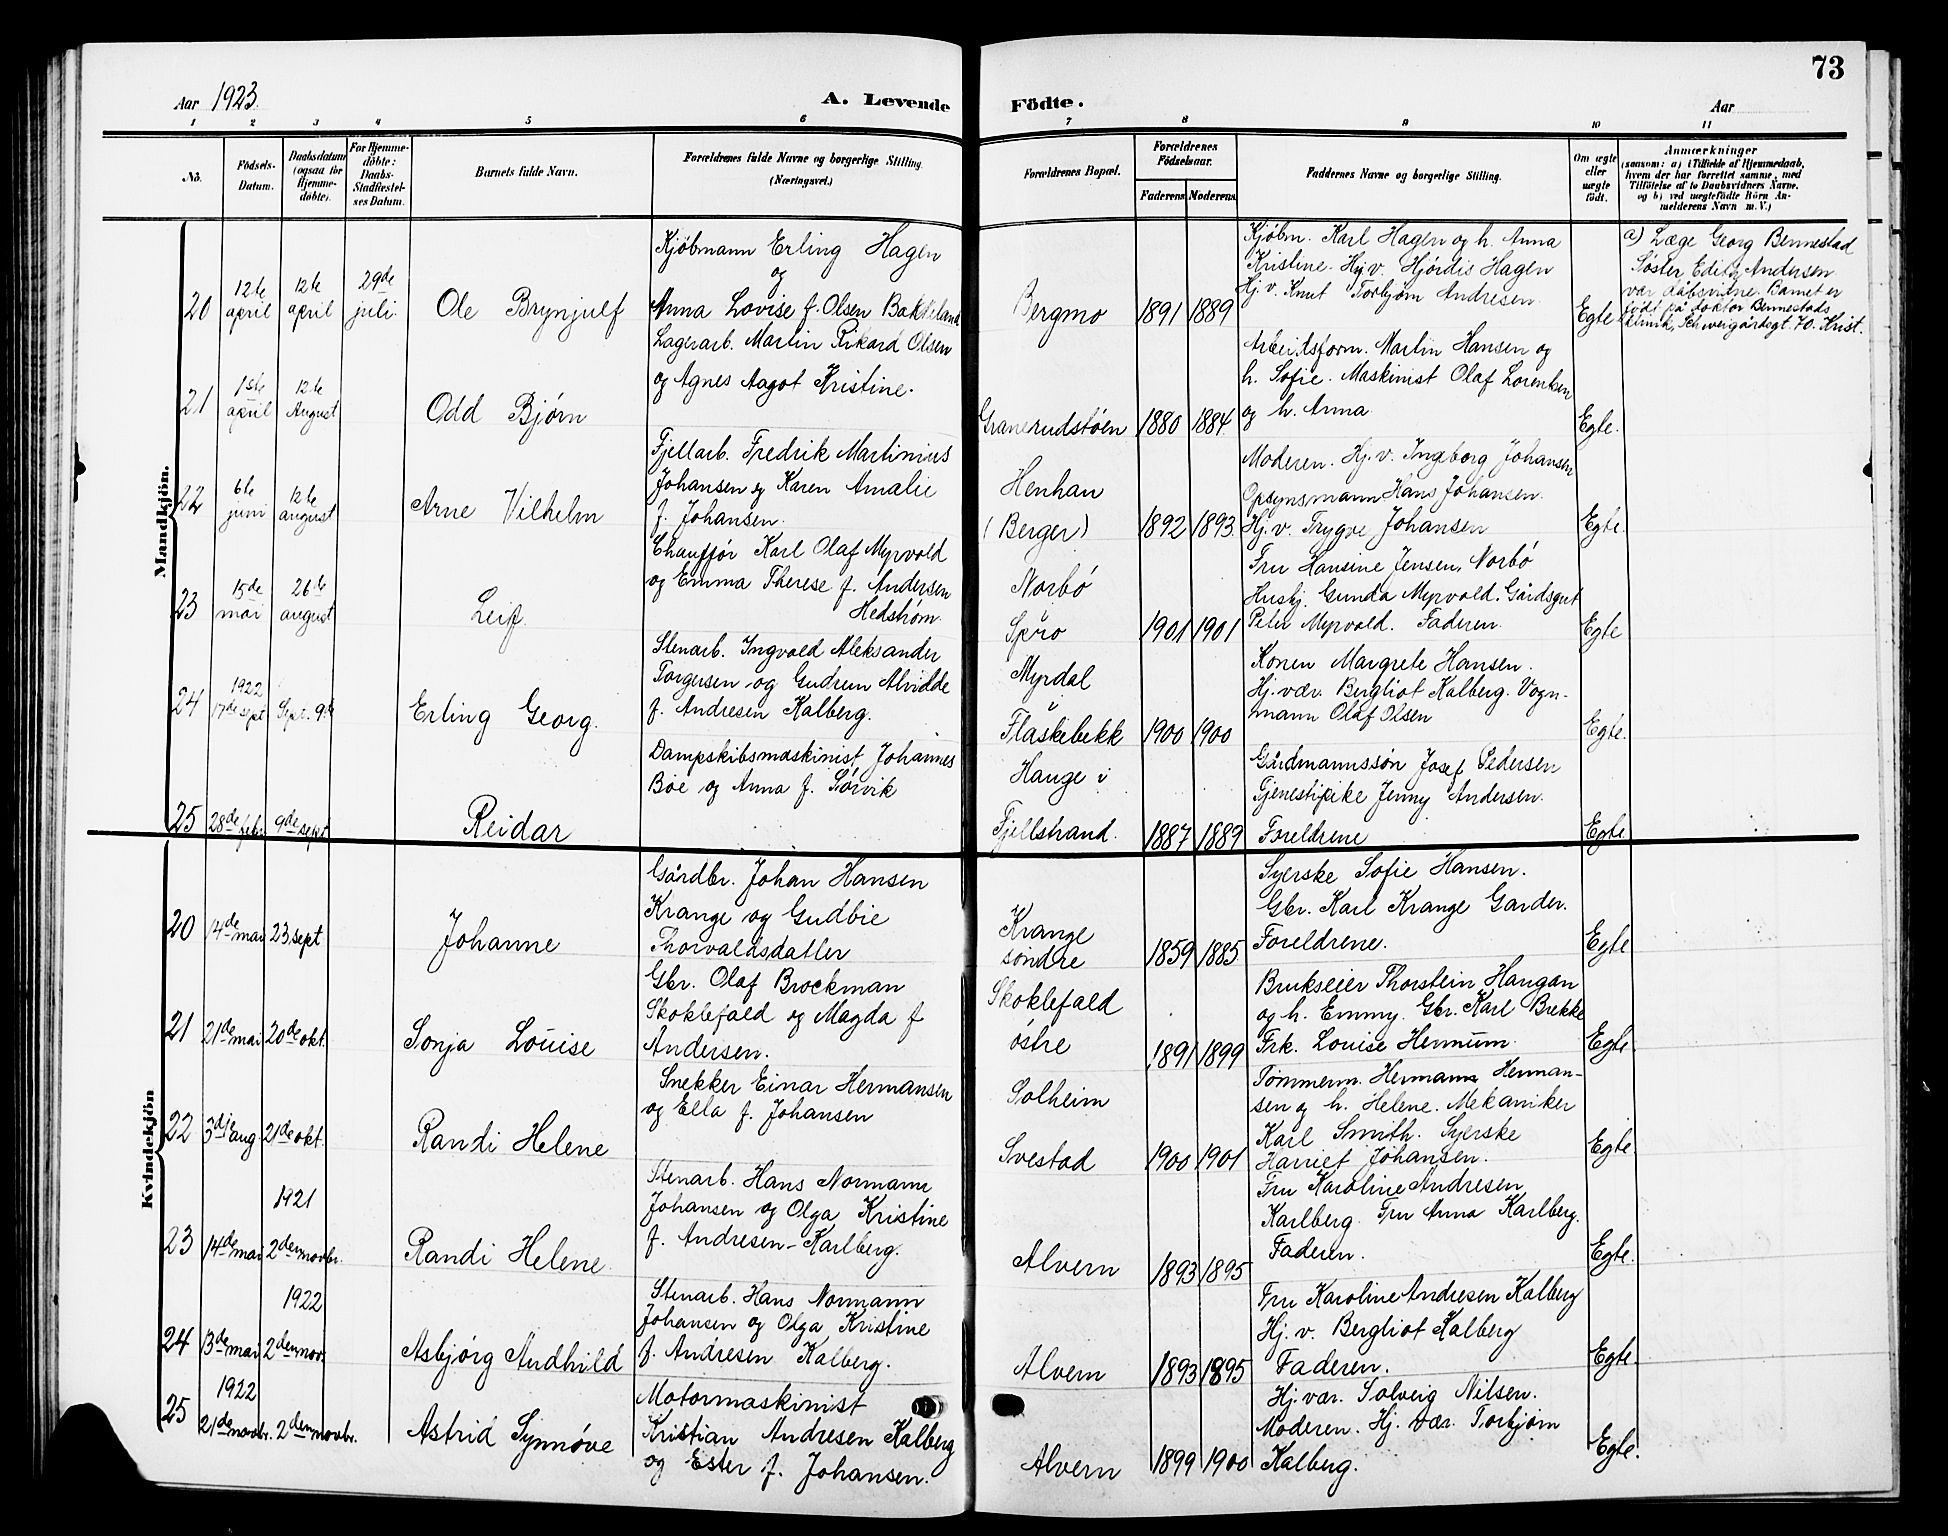 73
Aar 1923.
A. Levende Födte.
Aar
1 2 3 4 5 6 7 8 9 10 11
No.
Födsels-Datum.
Daabsdatum (ogsaa for Hjemme-döbte).
For Hjemme-döbte: Daabs-Stadfæstel-ses Datum.
Barnets fulde Navn.
Forældrenes fulde Navne og borgerlige Stilling. (Næringsvei.)
Forældrenes Bopæl.
Forældrenes Födselsaar.
Faderens Moderens
Faddernes Navne og borgerlige Stilling.
Om ægte eller uægte födt.
Anmærkninger
(saasom: a) i Tilfælde af Hjemmedaab,
hvem der har forrettet samme, med
Tilföielse af to Daabsvidners Navne.
og b) ved uægtefödte Börn An-
melderens Navn m. V.)
Mandkjön.
20
12te april
12te april
29de juli.
Ole Brynjulf
Kjøbmann Erling Hagen
og
Anna Lovise f. Olsen Bakkeland
Bergmo
1891 1889
Kjøbm. Karl Hagen og h. Anna
Kristine. Hj. v. Hjørdis Hagen
Hj. v. Knut Torbjørn Andresen.
Egte
a) Læge Georg Bennestad
Søster Edith Andersen
var dåbsvitne. Barnet er
født på doktor Bennestads
klinik, Schweigårdsgt. 70. Krist.
21
1ste april
12te August
Odd Bjørn
Lagerarb. Martin Rikard Olsen
og Agnes Aagot Kristine.
Granerudstøen
1880 1884
Arbeidsform. Martin Hansen og
h. Sofie. Maskinist Olaf Lorentsen
og h. Anna
Egte.
22
6te juni
12te august
Arne Vilhelm
Fjellarb. Fredrik Martinius
Johansen og Karen Amalie
f. Johansen.
Henhan
(Berger)
1892 1893.
Moderen. Hj. v. Ingeborg Johansen
Opsynsmann Hans Johansen.
Hj. v. Trygve Johansen
Egte.
23
15de mai
26te august
Leif.
Chauffør Karl Olaf Myrvold
og Emma Therese f. Andersen
Hedstrøm.
Norbó
Spro
1901 1901
Fru Hansine Jensen, Norbó
Huskj. Gunda Myrvold. Gårdsgut
Peter Myrvold. Faderen.
Egte
24
1922
17de sept
Sept. 9de
Erling Georg.
Stenarb. Ingvald Aleksander
Torgersen og Gudrun Alvidde
f. Andresen Kalberg.
Myrdal
Flaskebekk
1900 1900
Konen Margrete Hansen.
Hj. vær. Bergliot Kalberg. Vogn-
mann Olaf Olsen
Egte.
25
28de febr.
9de sept
Reidar
Dampskibsmaskinist Johannes
Bøe og Anna f. Sørvik
Hauge i
Fjellstrand.
1887 1889
Gårdmannssøn Josef Pedersen
Tjenestpike Jenny Andersen.
Foreldrene
Egte
Kvindekjön
20
14de mai
23. sept
Johanne
Gårdbr. Johan Hansen
Krange og Gudbie
Thorvaldsdatter
Krange
søndre
1859 1885
Syerske Sofie Hansen.
Gbr. Karl Krange Garder.
Foreldrene.
Egte
21
21de mai
20de okt.
Sonja Louise
Gbr. Olaf Brockman
Skoklefald og Magda f
Andersen.
Skoklefald
østre
1891 1899
Brukseier Thorstein Haugan
og h. Emmy. Gbr. Karl Brekke
Frk. Louise Hernum.
Egte.
22
3dje aug.
21de okt.
Randi Helene
Snekker Einar Hermansen
og Ella f. Johansen
Solheim
Svestad
1900 1901
Tømmerm. Hermann Herman-
sen og h. Helene. Mekaniker
Karl Smith. Syerske
Harriet Johansen.
Egte.
23
1921
14de mai
2den novbr.
Randi Helene.
Stenarb. Hans Normann
Johansen og Olga Kristine
f. Andresen-Karlberg.
Alvern
1893 1895
Fru Karoline Andresen
Karlberg. Fru Anna Karlberg.
Faderen.
Egte.
24
1922
13de mai
2den nov.
Asbjørg Audhild
Stenarb. Hans Normann
Johansen og Olga Kristine
f. Andresen Kalberg.
Alvern
1893 1895
Fru Karoline Andresen Kalberg
Hj. v. Bergliot Kalberg
Faderen.
Egte.
25
1922
21de novbr.
2den novbr.
Astrid Synnøve
Motormaskinist
Kristian Andresen Kalberg
og Ester f. Johansen.
Alvern
1899 1900
Hj. vær. Solveig Nilsen.
Moderen. Hj. vær. Torbjørn
Kalberg.
Egte.